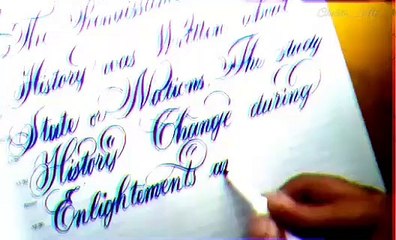 The Renaissance
History was Written about
State or Nations. The study
History Change during
Enlightements a